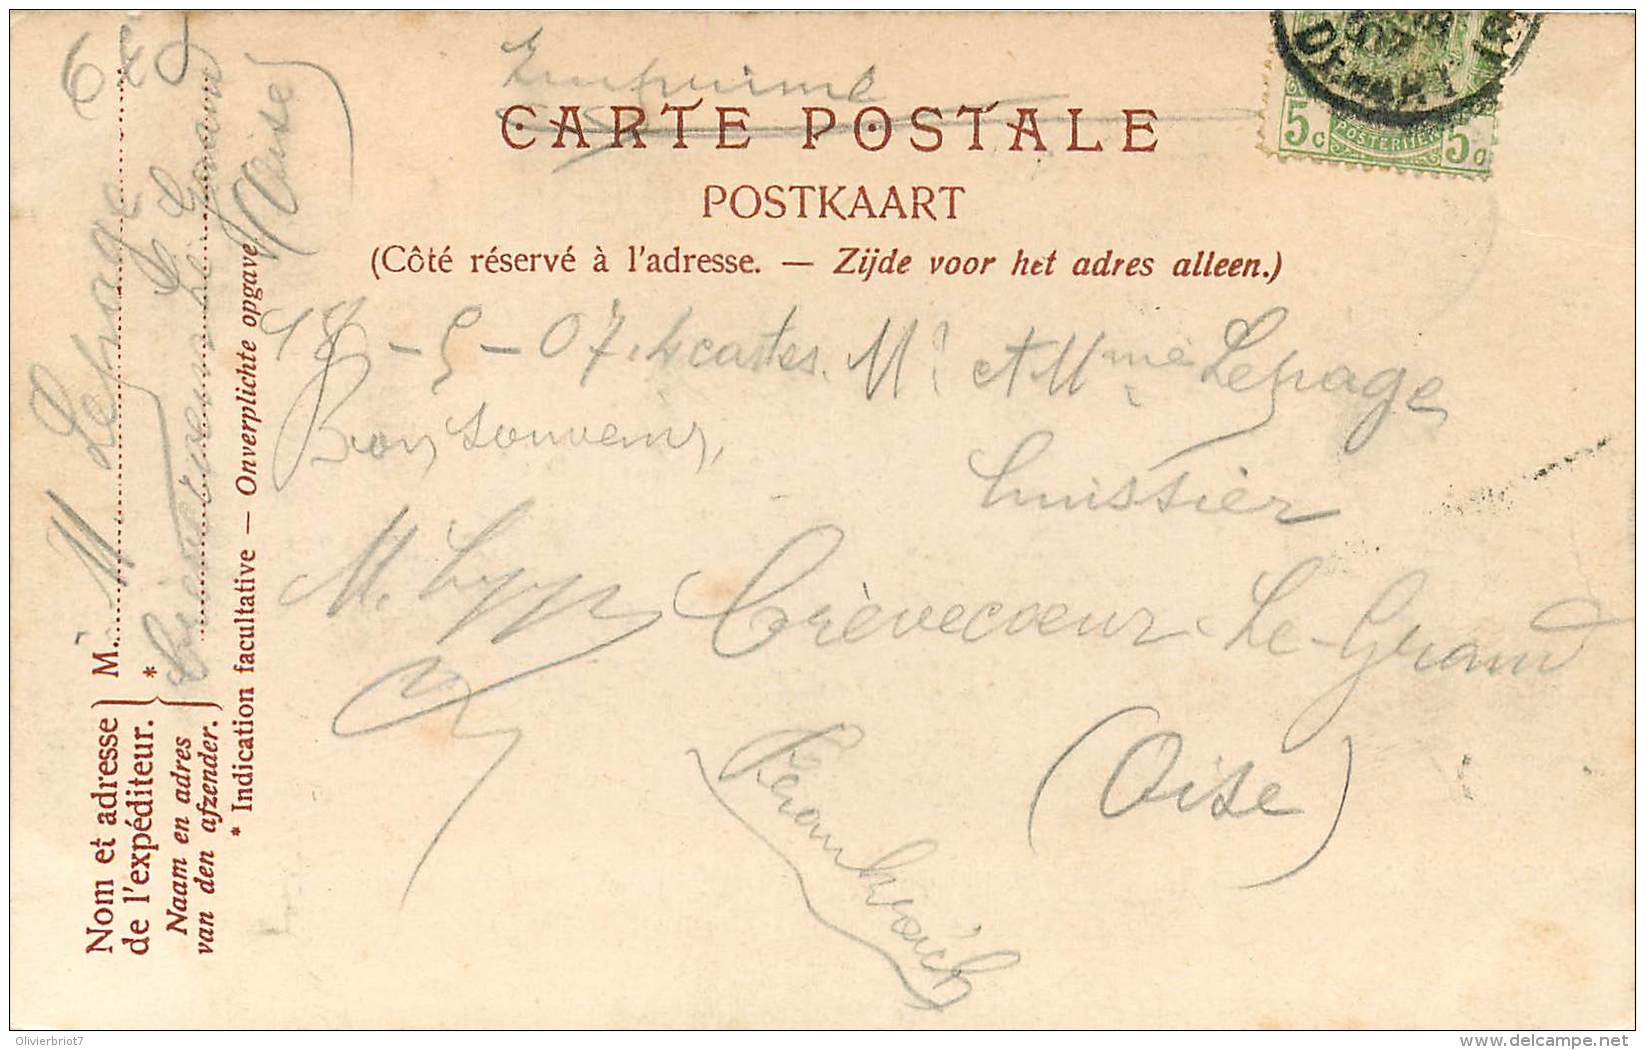 Imprimé
CARTE POSTALE
POSTKAART
(Côté réservé à l'adresse. — Zijde voor het adres alleen.)
5c POSTERIJEN 5c
DEPART
18-5-07. 4 cartes. Mr et Mme Lepage
Bon souvenir,
huissier
M.
Crèvecoeur-Le-Grand
(Oise)
Nom et adresse
de l'expéditeur.
Naam en adres
van den afzender.
M. M Lepage
*
* Indication facultative — Onverplichte opgave.
Crèvecoeur Le Grand
(Oise)
Olivierbriot7
www.delcampe.net